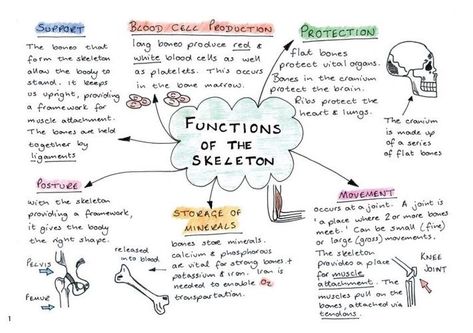 SUPPORT
The bones that
form the skeleton
allow the body to
stand. it keeps
us upright, providing
a framework for
muscle attachment.
The bones are held
together by
ligaments
BLOOD CELL PRODUCTION
long bones produce red &
white blood cells as well
as platelets. This occurs
in the bone marrow.
PROTECTION
flat bones
protect vital organs.
Bones in the cranium
protect the brain.
Ribs protect the
heart & lungs.
The cranium
is made up
of a series
of flat bones
FUNCTIONS
OF THE
SKELETON
POSTURE
with the skeleton
providing a framework,
it gives the body
the right shape.
PELVIS
FEMUR
STORAGE OF
MINERALS
released into blood
bones store minerals.
calcium & phosphorous
are vital for strong bones +
potassium & iron. Iron is
needed to enable O2
transportation.
MOVEMENT
occurs at a joint. A joint is
'a place where 2 or more bones
meet.' Can be small (fine)
or large (gross) movements.
The skeleton
provides a place
for muscle
attachment. The
muscles pull on the
bones, attached via
tendons.
KNEE
JOINT
1